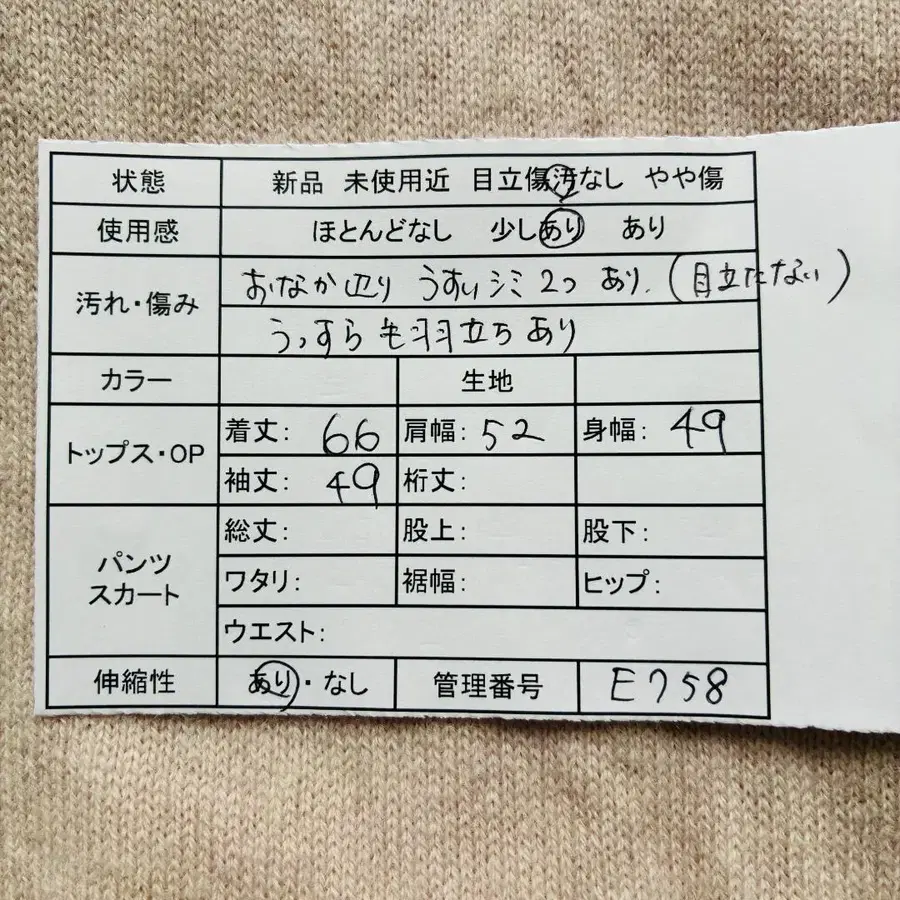 状態 新品 未使用近 目立傷汚なし やや傷
使用感 ほとんどなし 少しあり あり
汚れ・傷み おなか辺り うすいシミ2つ あり.(目立たない)
うっすら毛羽立ちあり
カラー 生地
トップス・OP 着丈: 66 肩幅: 52 身幅: 49
袖丈: 49 裄丈:
パンツ スカート 総丈: 股上: 股下:
ワタリ: 裾幅: ヒップ:
ウエスト:
伸縮性 あり・なし 管理番号 E758